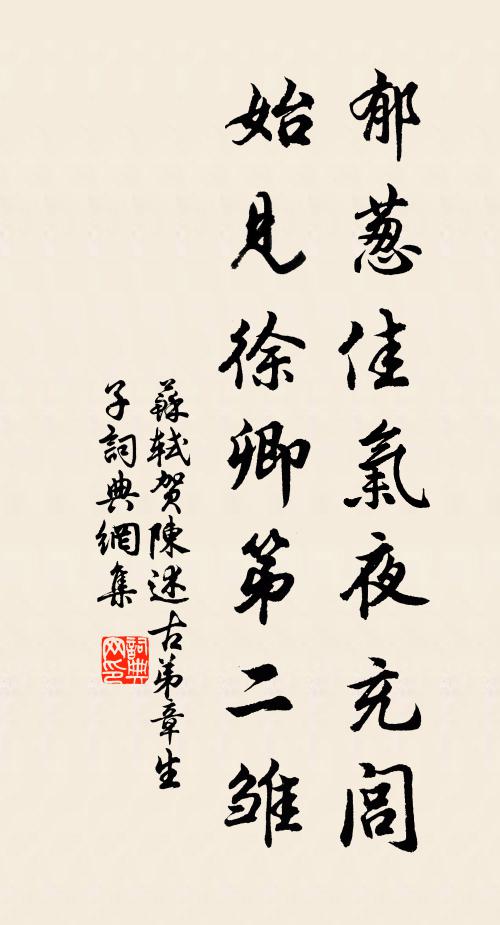 郁葱佳氣夜充閭
始見徐卿第二雛
蘇軾賀陳述古弟章生
子詞典網集
詞典網印